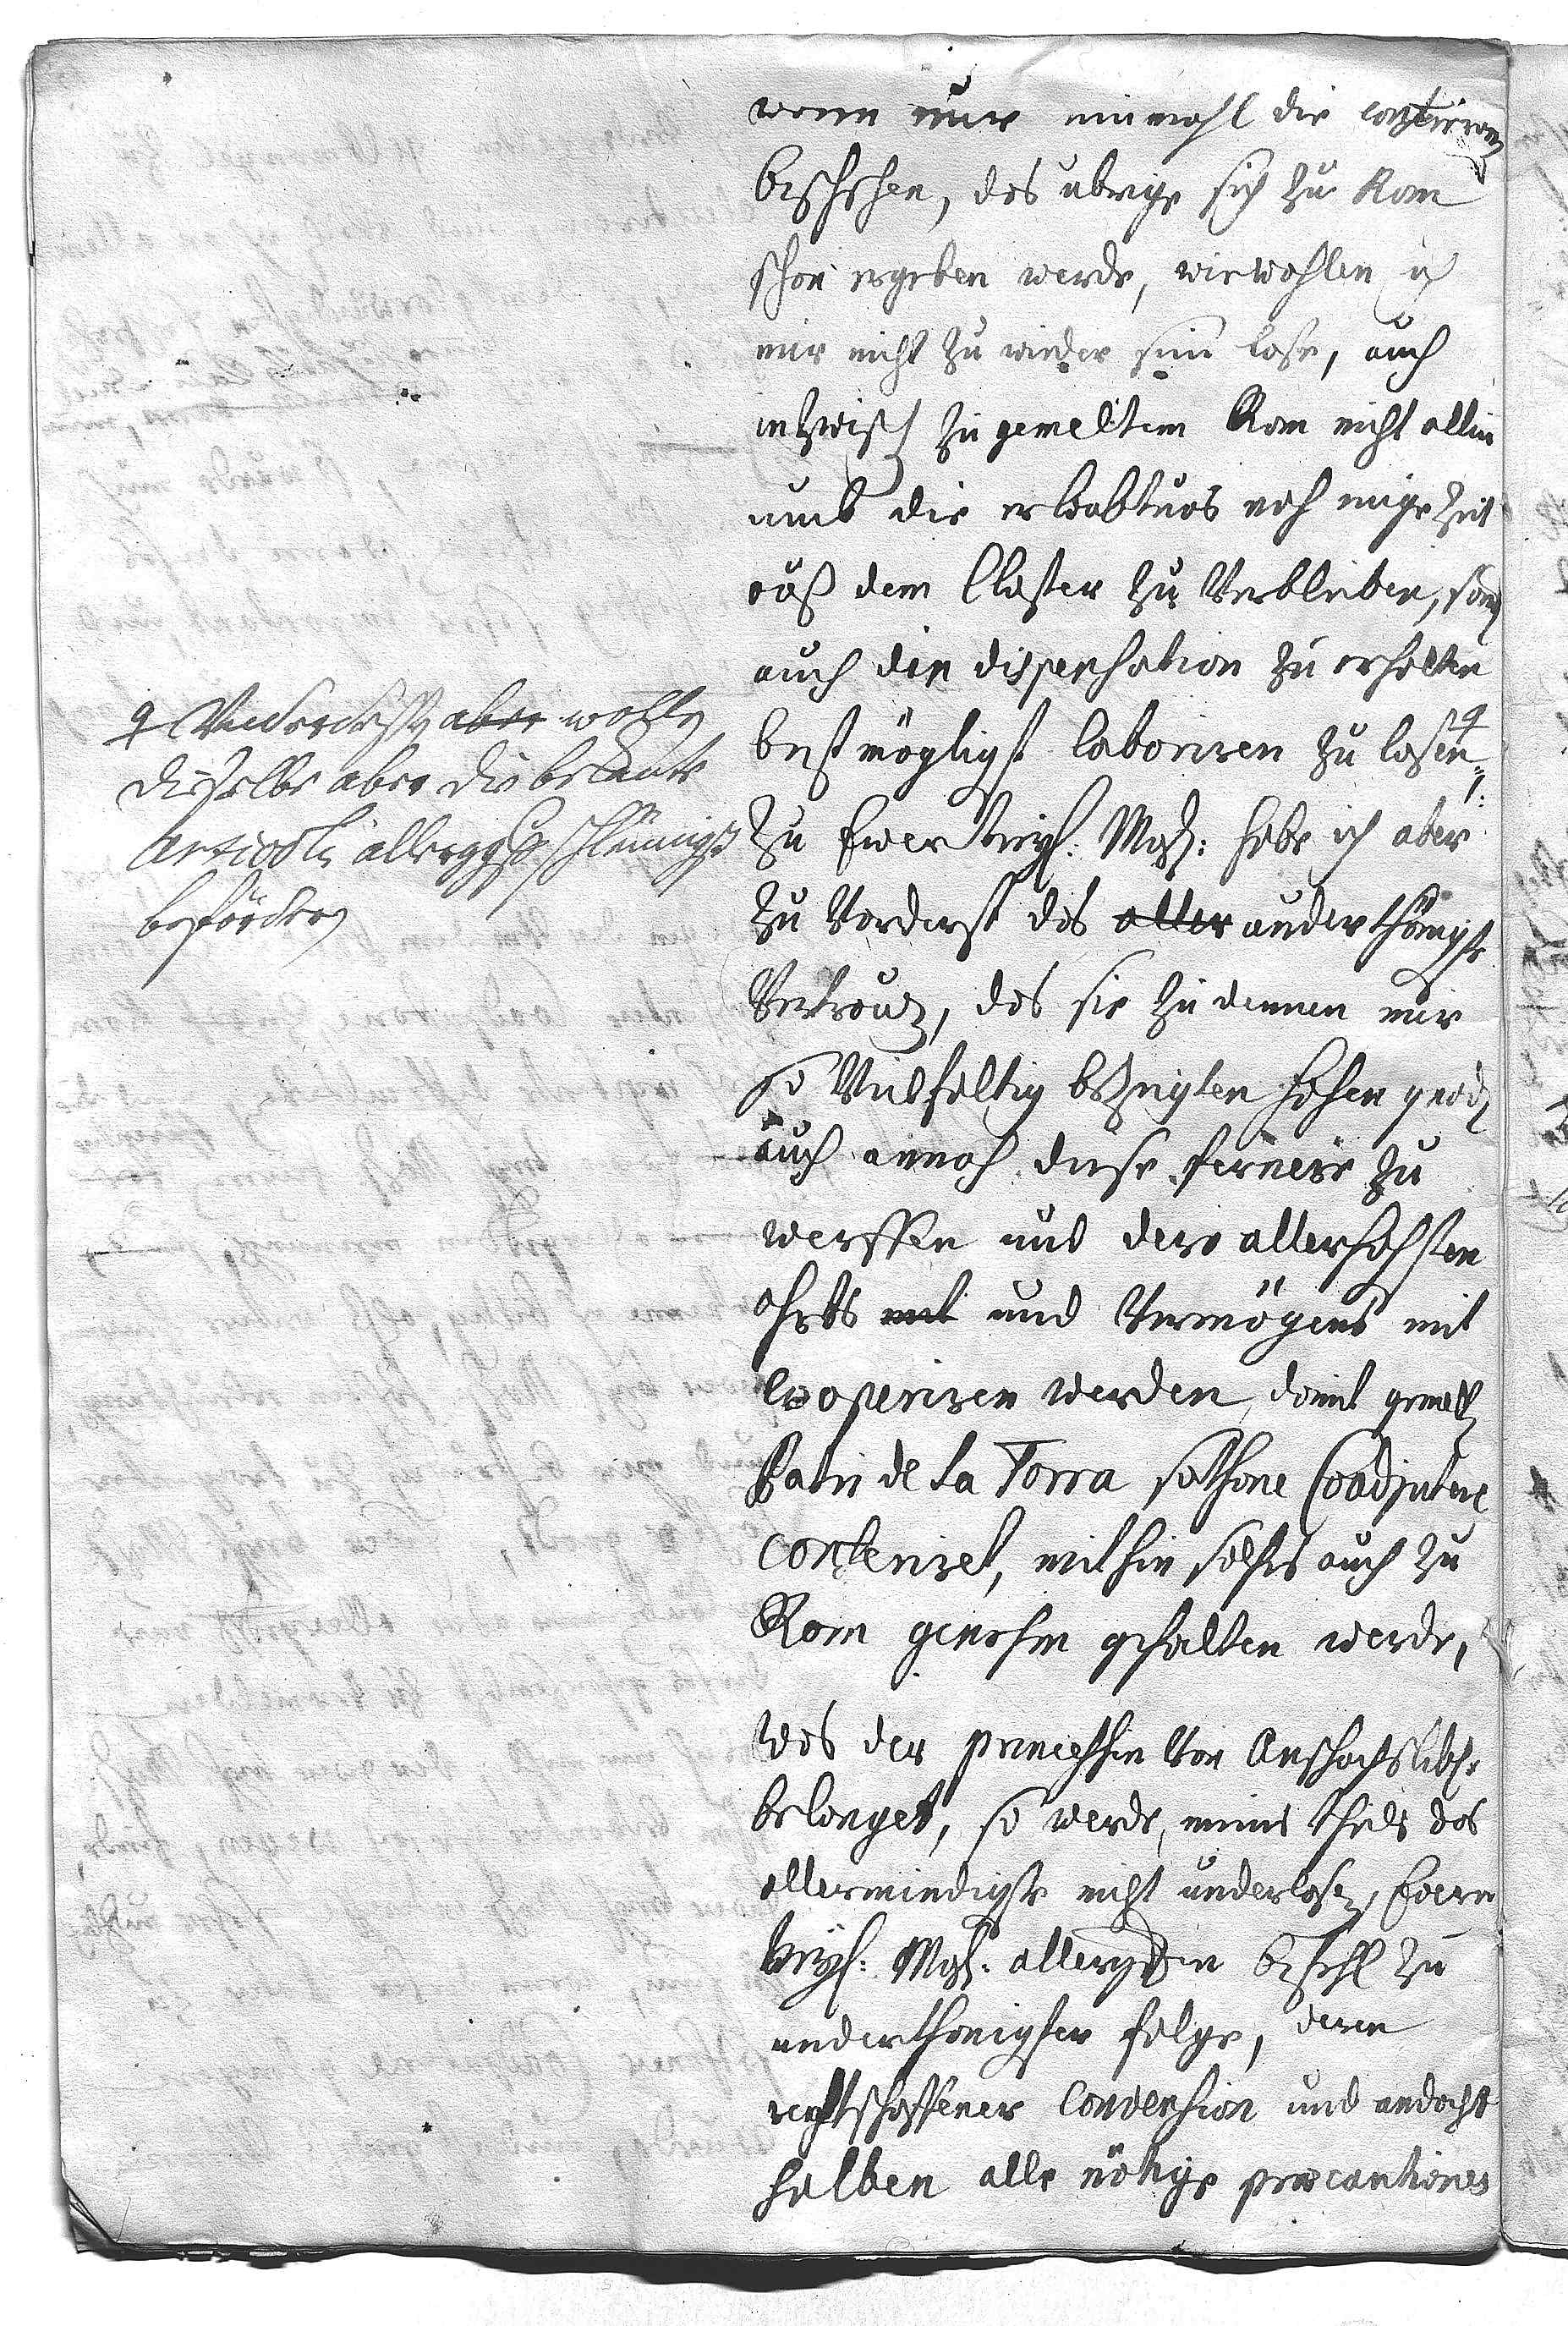 wenn nur einmahl die
beschehen, das ubrige sich zu Rom
schon ergeben werde, wiewohlen ich
mir nicht zu wieder sein lase, auch
inzwisch zu gemeltem Rom nicht allein
umb die erlaubtnus noch einige Zeit
auß dem Closter zu Verbleiben, sond
auch die dispensation zu erhalten
bestmögligst laboriren zu lasen
Zu Ewer Kayß: Mayß: habe ich aber
zu Vorderst das aller underthänigste
Vertrauen, das sie zu denen mir
so Vielfeltig bezeigten hohen gnad
auch annoch diese fernere zu
werffen und dero allerhöchsten
ohrts mit und Vermögens mit
cooperiren werden, damit gemelt
Patri de La Torra sothane Coadjutorie
conferiret, mithin solches auch zu
Rom genehm gehalten werde,
Was der princessin Von Anspach Lbd.
belanget, so werde, meines theils das
allermindigste nicht underlasen, Ewern
Kayß: Mayß: allergdsten befehl zu
underthenigster folge, deren
rechtschaffener Conversion und andacht
halben alle nötige praecautiones
aber wollen
dieselbe aber die bekante
beförderen